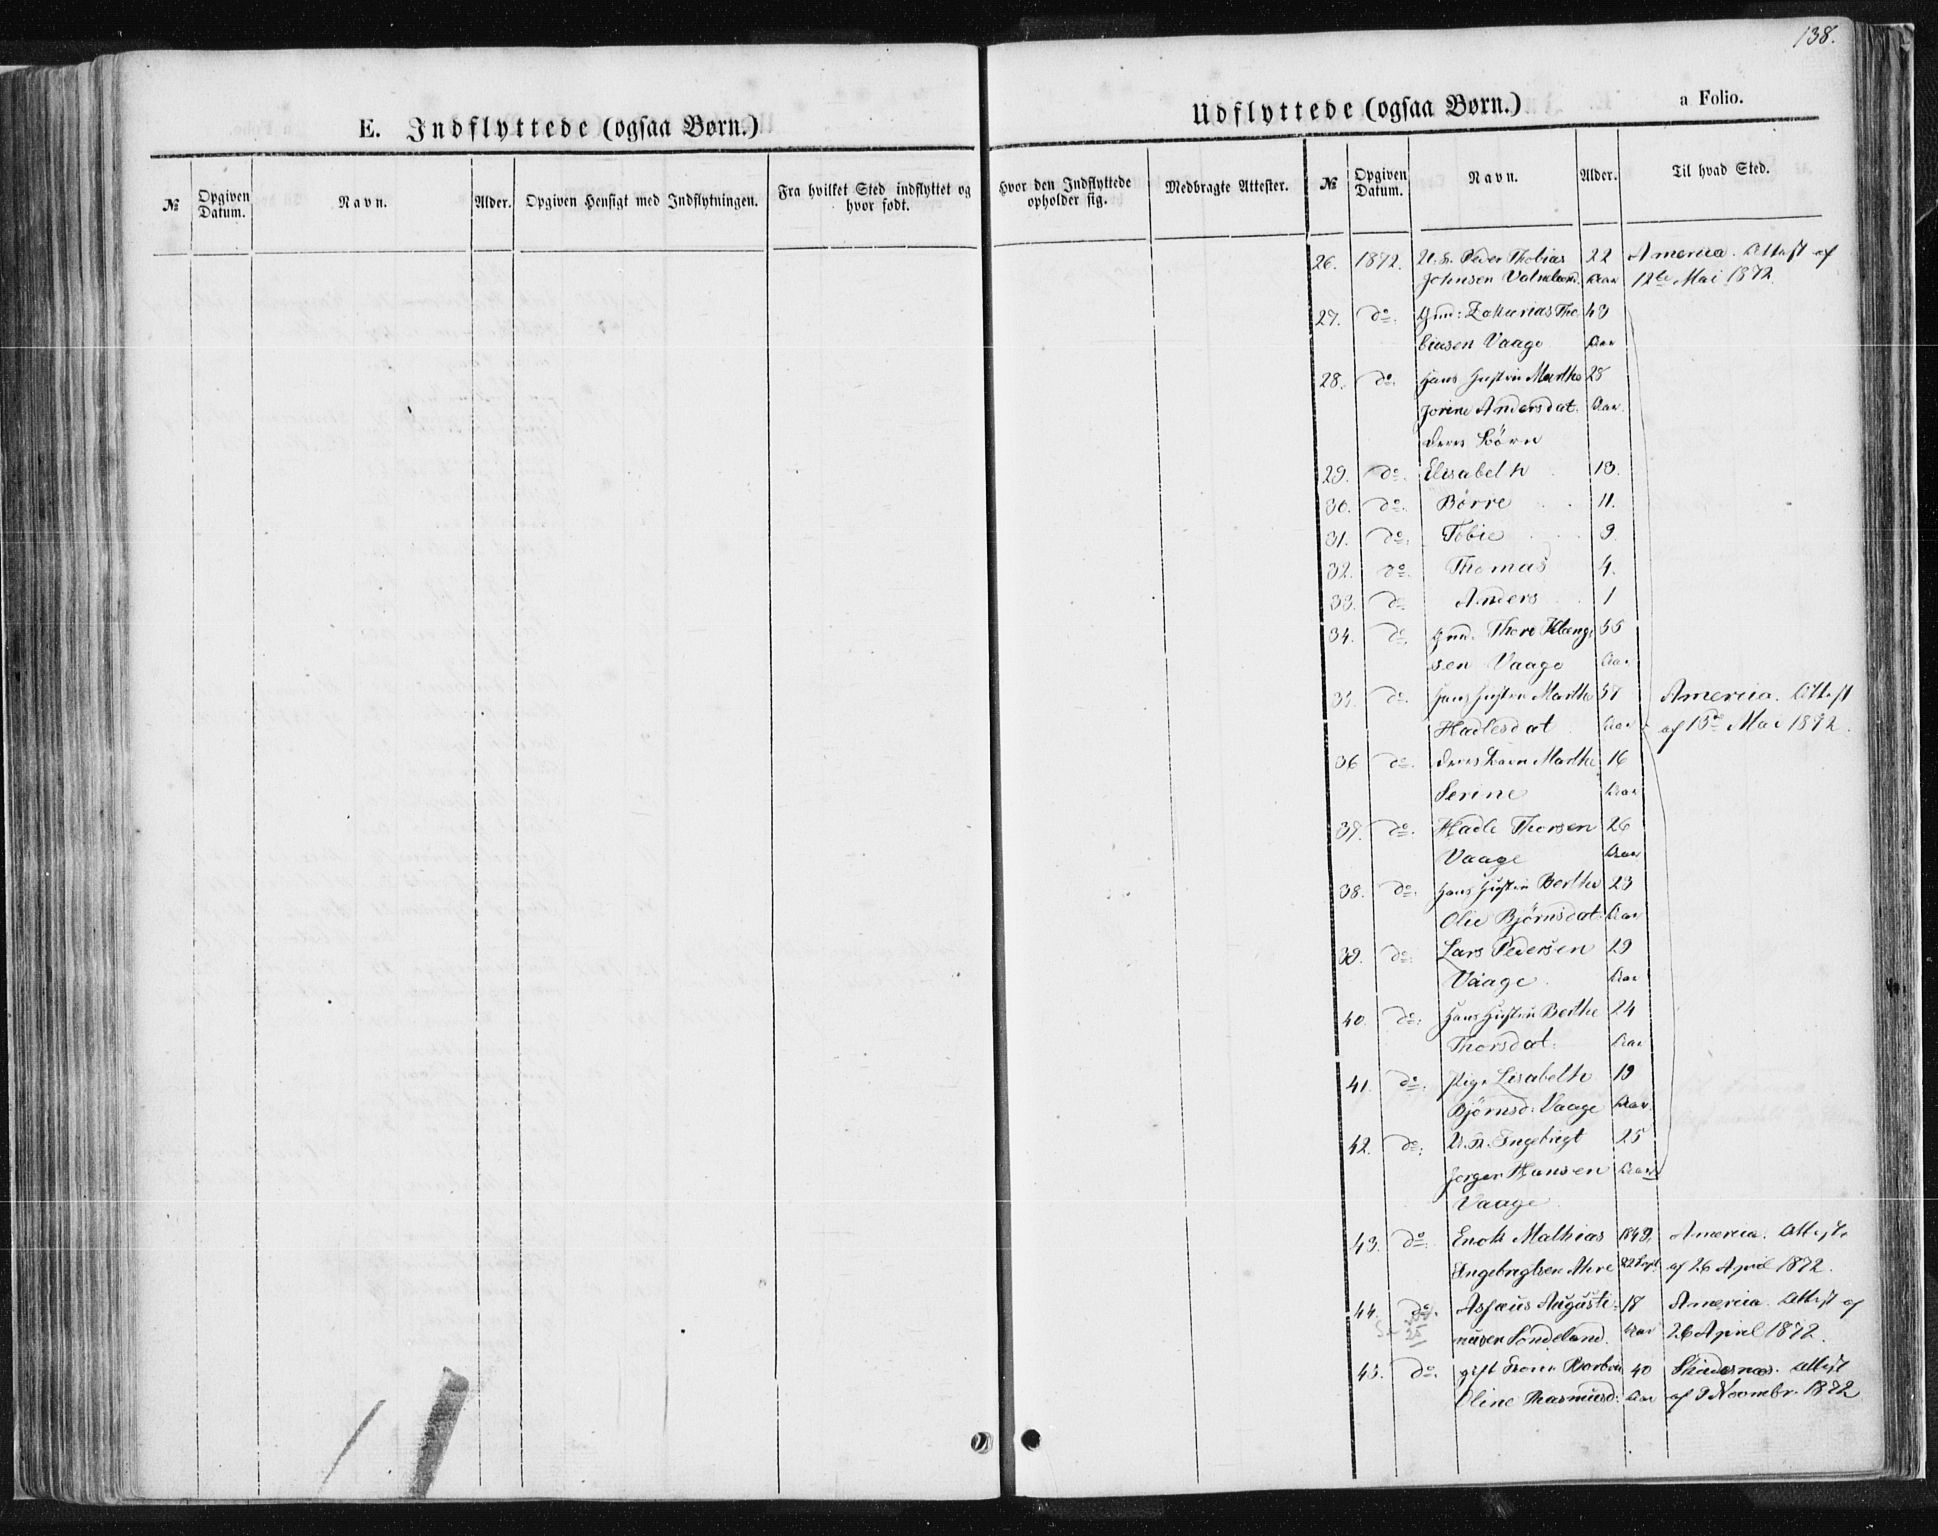 138.
E. Indflyttede (ogsaa Børn.)
Udflyttede (ogsaa Børn.)
a Folio.
№
Opgiven Datum.
Navn.
Alder.
Opgiven Hensigt med Indflytningen.
Fra hvilket Sted indflyttet og hvor født.
Hvor den Indflyttede opholder sig.
Medbragte Attester.
№
Opgiven Datum.
Navn.
Alder.
Til hvad Sted.
26. 1872. Peder Thobias 22 America. Attest af
Johnsen Aar 12te Mai 1872.
27. do. Gmd: Zakarias Tho- 43
biasen Vaage Aar
28. do. Hans Hustru Marthe 28
Jorine Andersdat. Aar.
deres Börn
29. do. Elisabeth 13.
30. do. Börre 11.
31. do. Tobie 9.
32. do. Thomas 4.
33. do Anders 1
34. do. Gmd. Thore 55
sen Vaage Aar
35. do. Hans Hustru Marthe 57 America. Attest
Hadlesdat Aar af 15de Mai 1872.
36 do. deres Barn Marthe 16
Serine Aar
37. do. Hadle Thorsen 26
Vaage Aar
38. do. Hans Hustru Berthe 23
Olie Björnsdat. Aar
39. do: Lars Pedersen 29
Vaage. Aar
40. do: Hans Hustru Berthe 24
Thorsdat: Aar
41. do: Pige Lisabeth 19
Björnsd: Vaage Aar.
42. do; Engebrigt 25
Jørgen Hansen Aar
Vaage.
43. do: Enok Mathias 1849, America. Attest
Engebrigtsen 22 Sept. af 26 April 1872.
44. do. Asfæus Augusti- 18 America. Attest af
nusen Søndeland. Aar 26 April 1872.
45. do. gift Kone Barbra 40 Skudesnæs. Attest
Oline Rasmusd: Aar af 9 Novembr. 1872